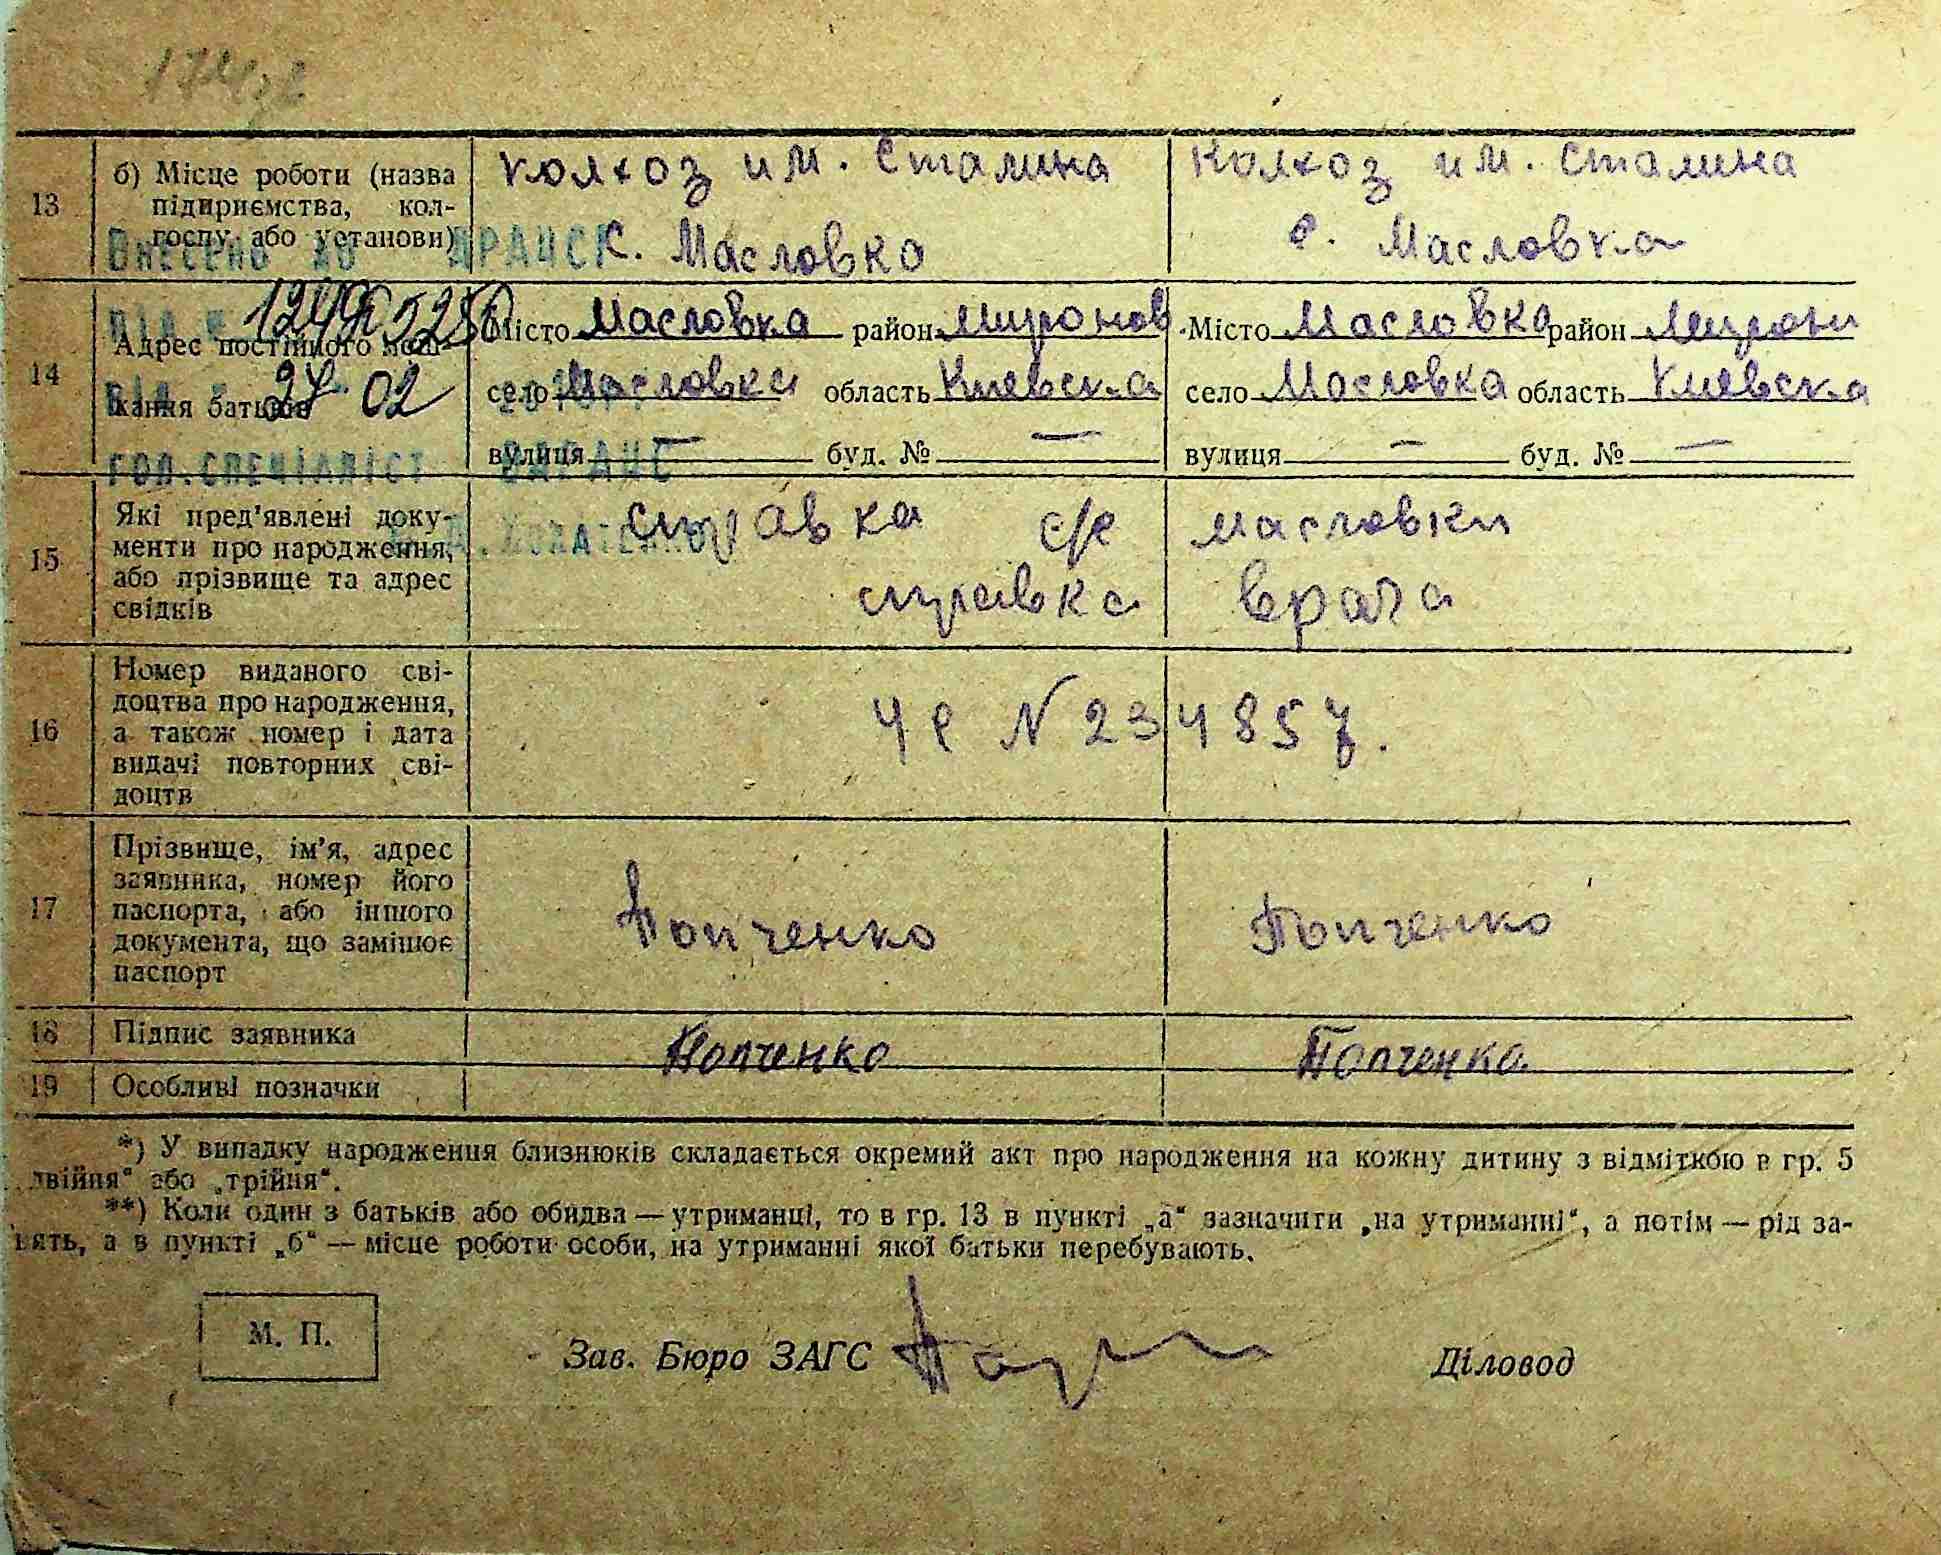 13 б) Місце роботи (назва підприємства, колгоспу або установи) колхоз им. Сталина с. Масловка колхоз им. Сталина с. Масловка
Внесено до ДРАЦСГ
14 Адрес постійного мешкання батьків
27 02
Місто Масловка район Миронов. Місто Масловка район Мирон
село Масловка область Киевска село Масловка область Киевска
вулиця — буд. № — вулиця — буд. № —
гол. спеціаліст ВДРАЦС
15 Які пред'явлені документи про народження, або прізвище та адрес свідків
справка с/с Масловки
справка врача
16 Номер виданого свідоцтва про народження, а також номер і дата видачі повторних свідоцтв
ЧЕ N 234857.
17 Прізвище, ім'я, адрес заявника, номер його паспорта, або іншого документа, що заміщює паспорт
Попченко Попченко
18 Підпис заявника Попченко Попченко
19 Особливі позначки
*) У випадку народження близнюків складається окремий акт про народження на кожну дитину з відміткою в гр. 5
„двійня“ або „трійня“.
**) Коли один з батьків або обидва — утриманці, то в гр. 13 в пункті „а“ зазначити „на утриманні“, а потім — рід за-
нять, а в пункті „б“ — місце роботи особи, на утриманні якої батьки перебувають.
М. П.
Зав. Бюро ЗАГС
Діловод